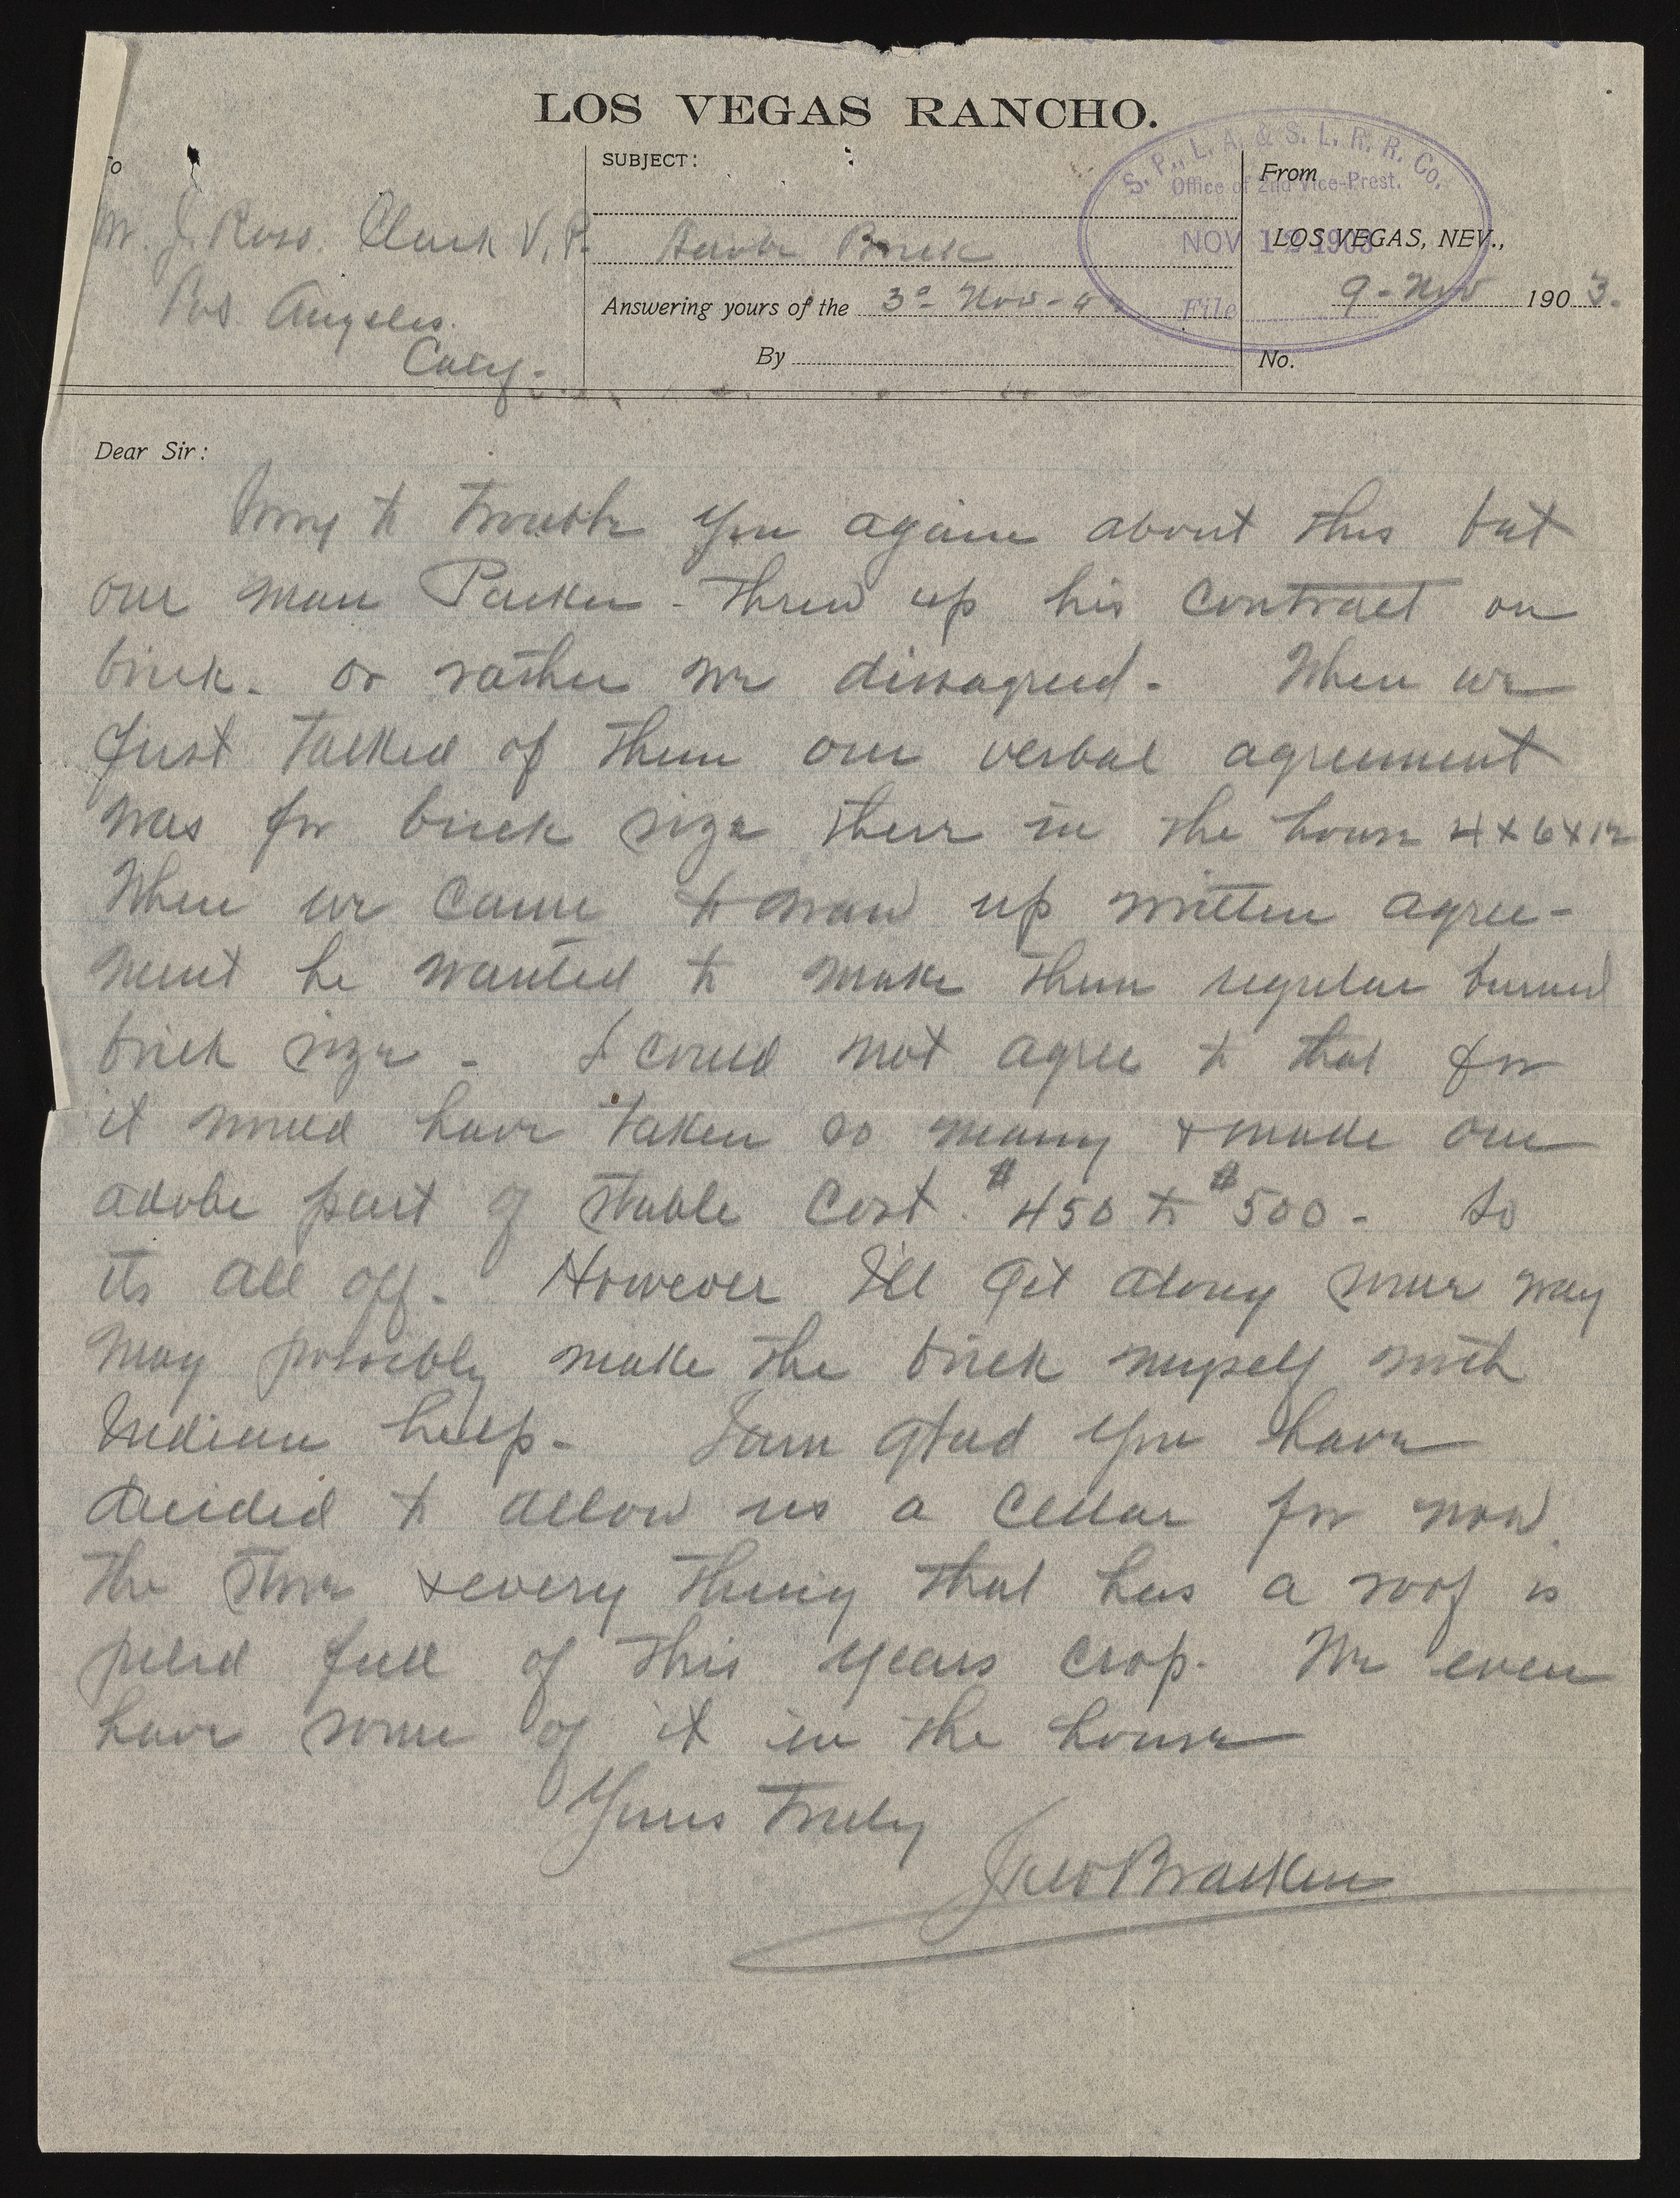 LOS VEGAS RANCHO.
To
M. J. Ross. Clark V.P.
Los Angeles.
Caly.
SUBJECT:
Adobe Brick
Answering yours of the 3d Nov-
By
From
LOS VEGAS, NEV.,
9-Nov 1903.
No.
S. P., L. A. & S. L. R. R. Co.
Office of 2nd Vice-Prest.
NOV 12 1903
File
Dear Sir:
Sorry to trouble you again about this but
our man Parker - threw up his contract on
brick. or rather we dissagreed. When we
first talked of them our verbal agreement
was for brick size these in the house 4x6x12
When we came to draw up written agree-
ment he wanted to make them regular burned
brick size - I could not agree to that for
it would have taken so many & made our
adobe part of stable cost $450 to $500 - So
its all off. However I'll get along some way
May possibly make the brick myself with
Indian help - I am glad you have
decided to allow us a cellar for now
the store & every thing that has a roof is
piled full of this years crop. We even
have some of it in the house
Yours Truly
Walter Bracken